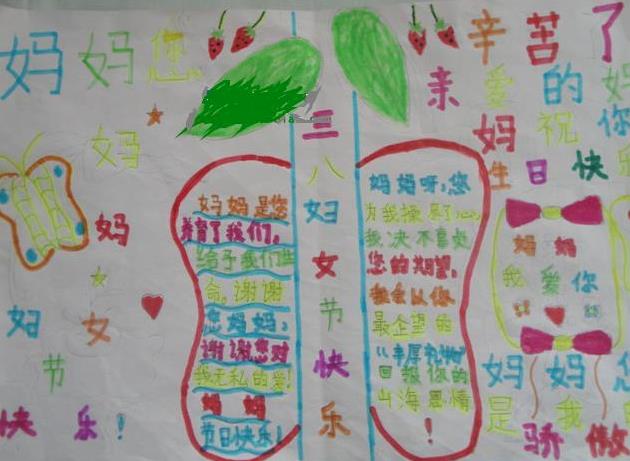 妈妈您
辛苦了
亲爱的妈
妈祝你
生日快乐
妈
妈
妇女
节
快乐！
三八妇女节快乐
妈妈是您
养育了我们，
给予我们生
命，谢谢
您妈妈，
谢谢您对
我无私的爱！
妈妈
节日快乐！
妈妈呀，您
为我操尽了心，
我决不辜处
您的期望，
我会以你
最企望的
“丰厚礼物”
回报你的
山海恩情
！
妈妈
我爱你
妈妈您
是我
骄傲